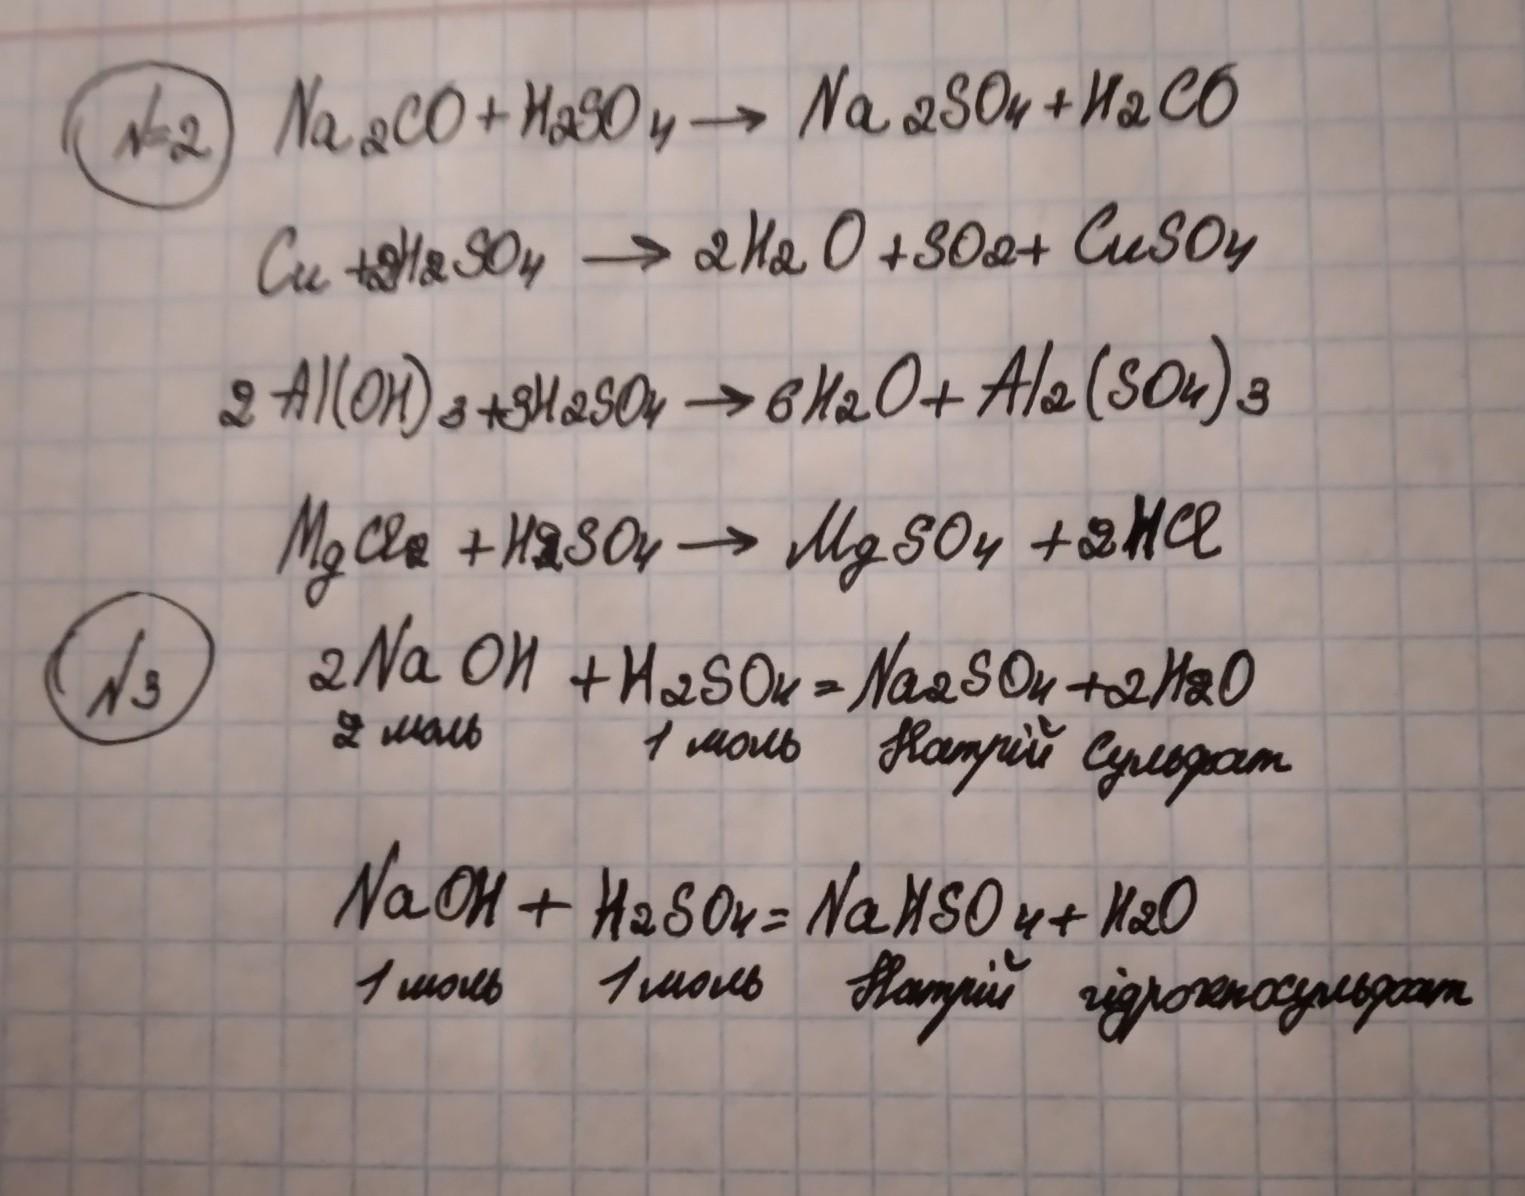 №2 Na2CO + H2SO4 → Na2SO4 + H2CO
Cu + 2H2SO4 → 2H2O + SO2 + CuSO4
2Al(OH)3 + 3H2SO4 → 6H2O + Al2(SO4)3
MgCl2 + H2SO4 → MgSO4 + 2HCl
N3 2NaOH + H2SO4 = Na2SO4 + 2H2O
2 моль 1 моль Натрій Сульфат
NaOH + H2SO4 = NaHSO4 + H2O
1 моль 1 моль Натрій гідрогеносульфат